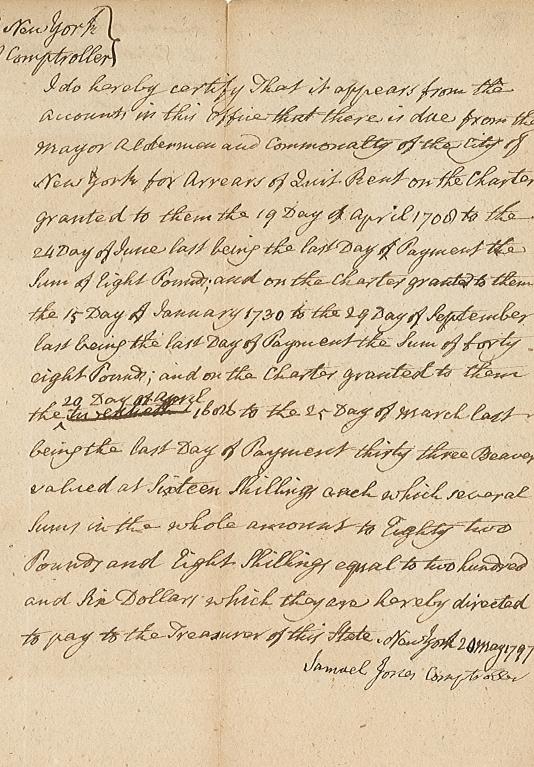 New York
Comptroller
I do hereby certify That it appears from the
accounts in this office that there is due from the
Mayor Aldermen and Commonalty of the City of
New York for Arrears of Quit Rent on the Charter
granted to them the 19 Day of April 1708 to the
24 Day of June last being the last Day of Payment the
Sum of Eight Pounds; and on the Charter granted to them
the 15 Day of January 1730 to the 29 Day of September
last being the last Day of Payment the Sum of forty
eight Pounds; and on the Charter granted to them
20 Day of April
the 1686 to the 25 Day of March last
being the last Day of Payment thirty three Beaver
valued at Sixteen Shillings each which several
Sums in the whole amount to Eighty two
Pounds and Eight Shillings equal to two hundred
and Six Dollars which they are hereby directed
to pay to the Treasurer of this State. New York 20 May 1797
Samuel Jones Comptroller